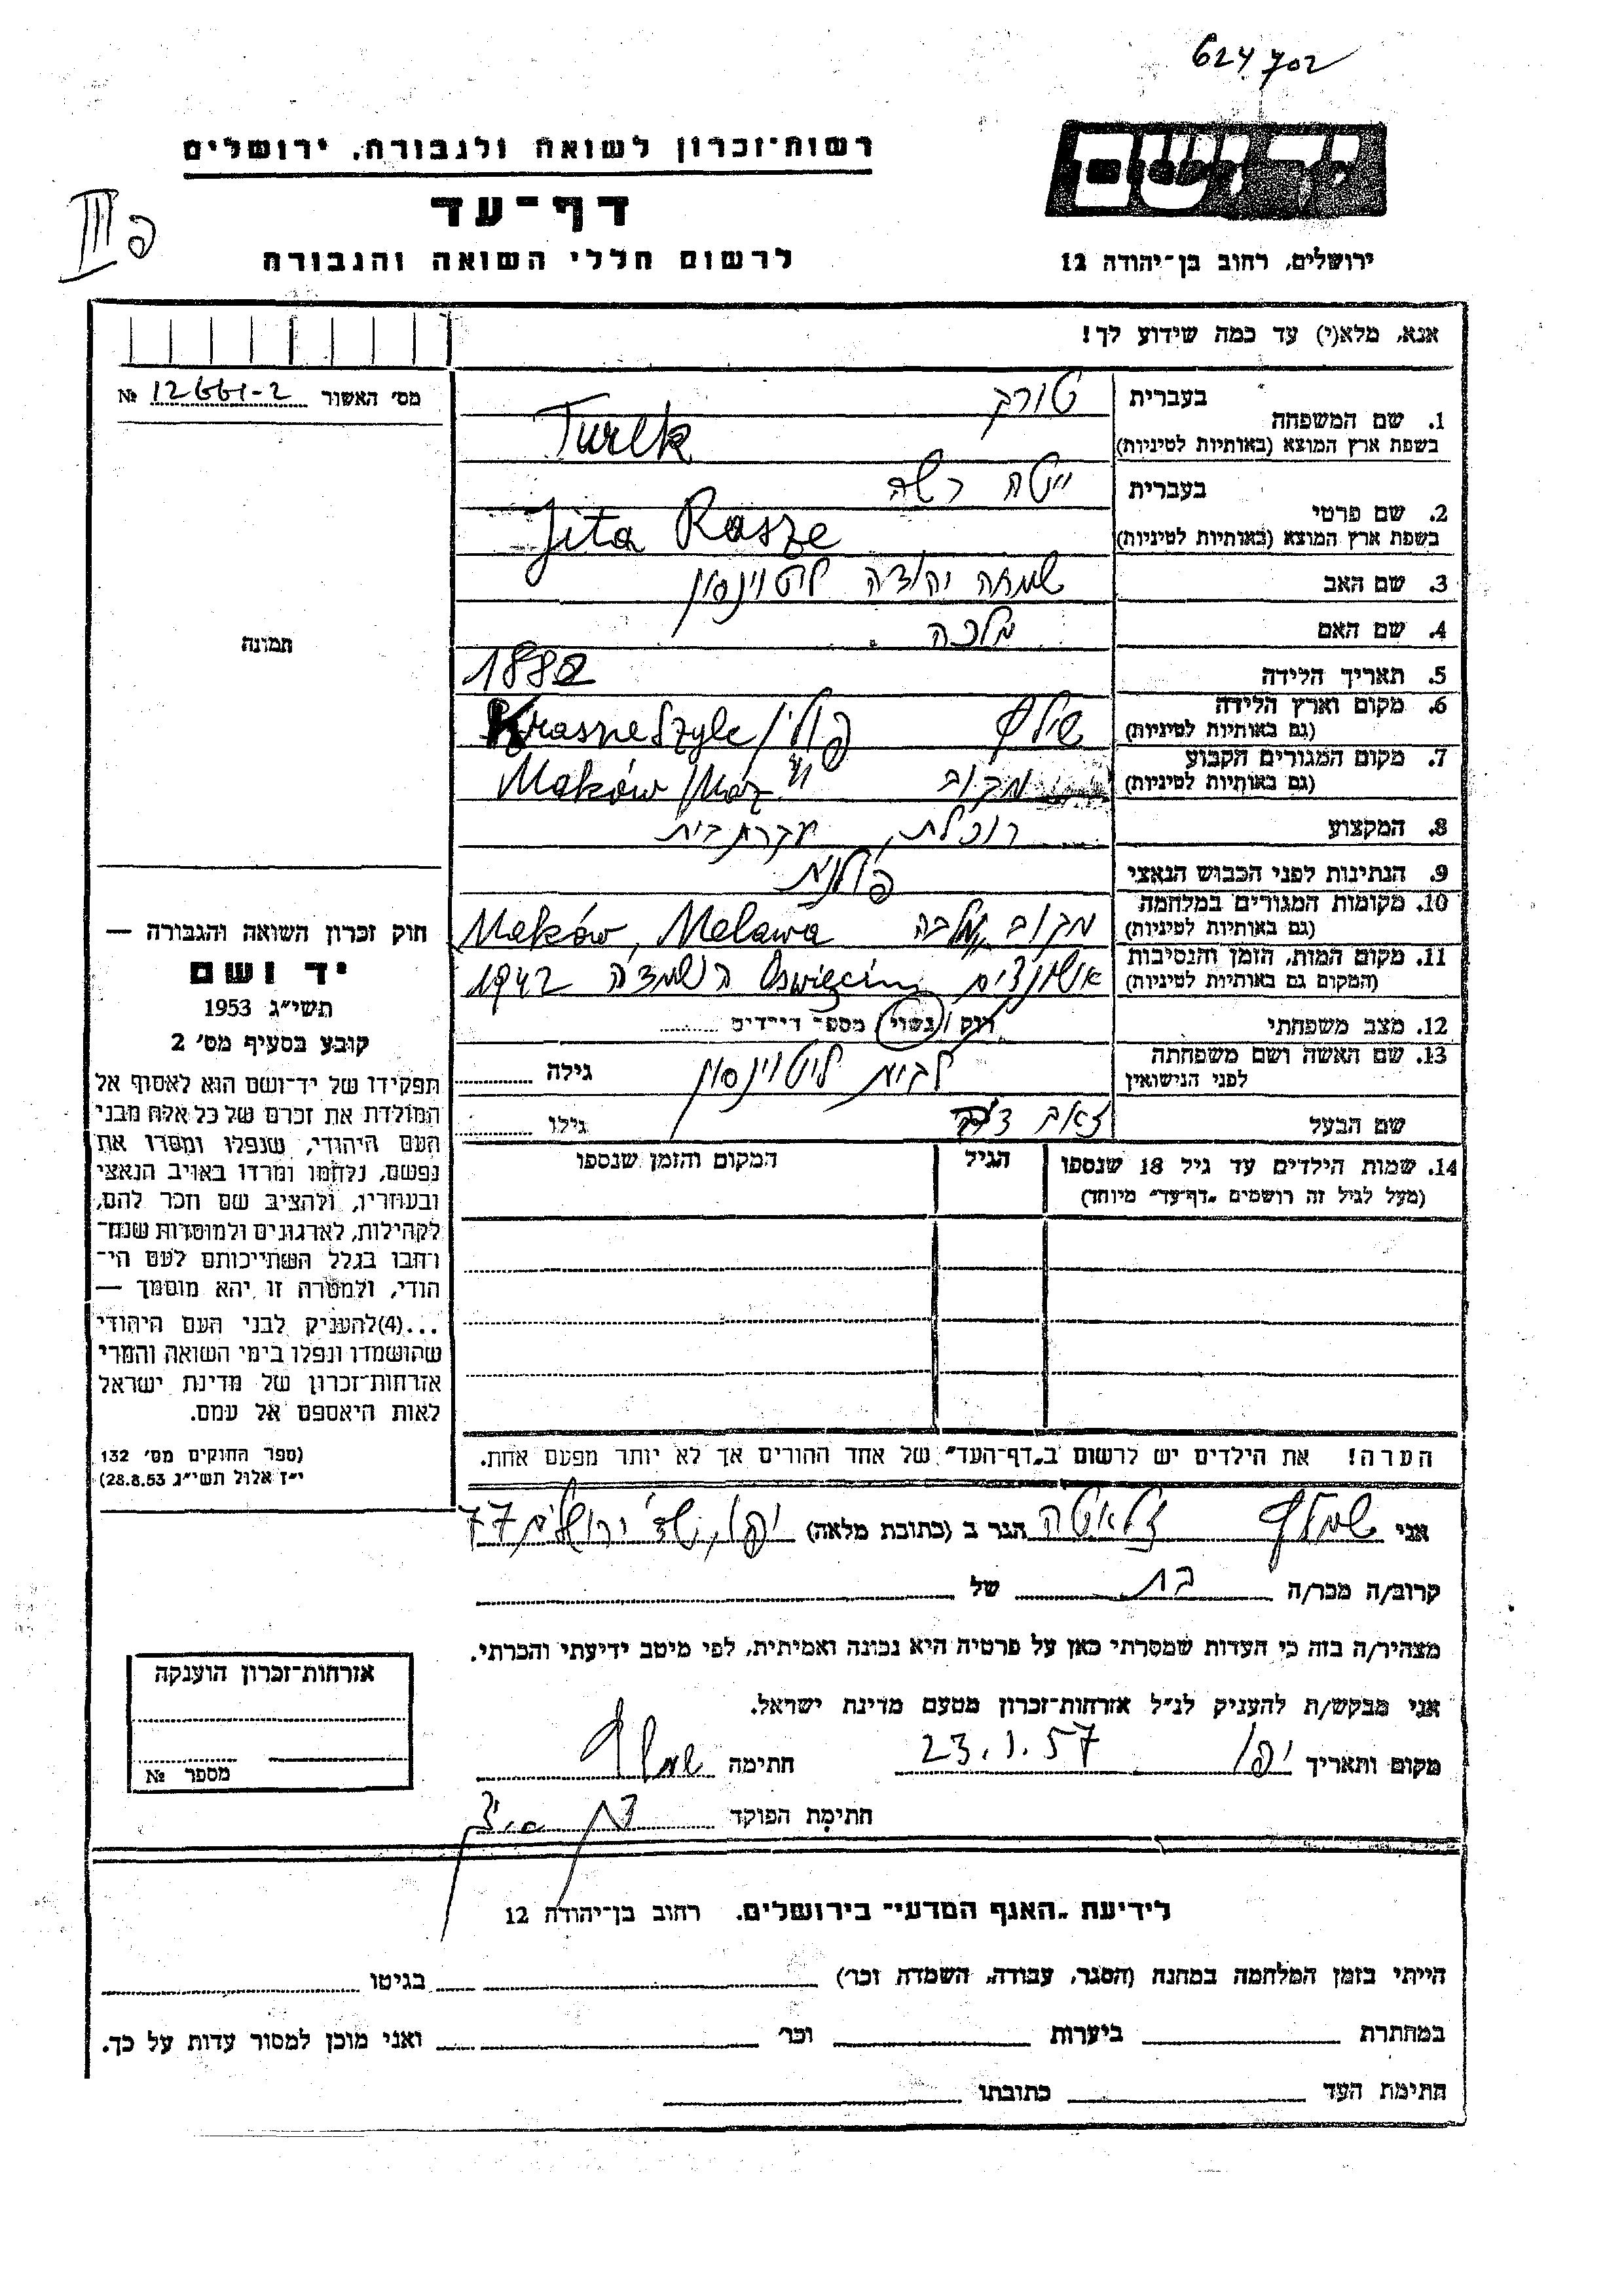 624702
רשות־זכרון לשואה ולגבורה, ירושלים
יד ושם
דף־עד
לרשום חללי השואה והגבורה
ירושלים, רחוב בן־יהודה 12
III פ
אנא, מלא(י) עד כמה שידוע לך!
מס׳ האשור 12661-2 №
1. שם המשפחה
בעברית טורק
בשפת ארץ המוצא (באותיות לטיניות) Turek
2. שם פרטי
בעברית ייטה רשה
בשפת ארץ המוצא (באותיות לטיניות) Jita Rasze
3. שם האב שמחה יהודה ליטוינסון
4. שם האם מלכה
תמונה
5. תאריך הלידה 1882
6. מקום וארץ הלידה
(גם באותיות לטיניות) שילץ פולין / Krasneszylc
7. מקום המגורים הקבוע
(גם באותיות לטיניות) מקוב Maków /Maz
8. המקצוע רוכלת, עקרת בית
9. הנתינות לפני הכבוש הנאצי פולנית
10. מקומות המגורים במלחמה
(גם באותיות לטיניות) מקוב Maków, Melawa
11. מקום המות, הזמן והנסיבות
(המקום גם באותיות לטיניות) Oswięcim 1942
12. מצב משפחתי רוק /נשוי/ מספר דיידים
13. שם האשה ושם משפחתה
לפני הנישואין לבית ליטוינסון גילה
שם הבעל זאב גילו
14. שמות הילדים עד גיל 18 שנספו
(מעל לגיל זה רושמים „דף־עד״ מיוחד)
הגיל
המקום והזמן שנספו
חוק זכרון השואה והגבורה —
יד ושם
תשי״ג 1953
קובע בסעיף מס׳ 2
תפקידו של יד־ושם הוא לאסוף אל
המולדת את זכרם של כל אלה מבני
העם היהודי, שנפלו ומסרו את
נפשם, נלחמו ומרדו באויב הנאצי
ובעוזריו, ולהציב שם וזכר להם,
לקהילות, לארגונים ולמוסדות שנח־
רבו בגלל השתייכותם לעם הי־
הודי, ולמטרה זו יהא מוסמך —
...(4)להעניק לבני העם היהודי
שהושמדו ונפלו בימי השואה והמרי
אזרחות־זכרון של מדינת ישראל
לאות היאספם אל עמם.
(ספר החוקים מס׳ 132
י״ז אלול תשי״ג 28.8.53)
הערה! את הילדים יש לרשום ב„דף־העד״ של אחד ההורים אך לא יותר מפעם אחת.
אני זלאטה הגר ב (כתובת מלאה) יפו, שד׳ ירושלים 77
קרוב/ה מכר/ה בת של
מצהיר/ה בזה כי העדות שמסרתי כאן על פרטיה היא נכונה ואמיתית, לפי מיטב ידיעתי והכרתי.
אני מבקש/ת להעניק לנ״ל אזרחות־זכרון מטעם מדינת ישראל.
מקום ותאריך יפו 23.1.57 חתימה
חתימת הפוקד
אזרחות־זכרון הוענקה
מספר №
לידיעת „האגף המדעי״ בירושלים. רחוב בן־יהודה 12
הייתי בזמן המלחמה במחנה (הסגר, עבודה, השמדה וכר׳) בגיטו
במחתרת ביערות וכר׳ ואני מוכן למסור עדות על כך.
חתימת העד כתובתו